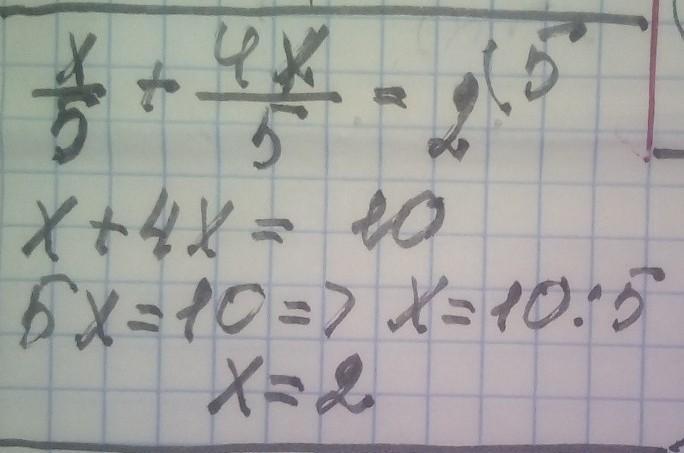 x/5 + 4x/5 = 2(5
x+4x= 10
5x=10=> x=10:5
x=2